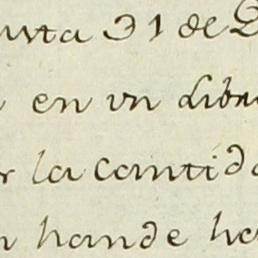 unta 31 de D
en un Libr
r la cantida
n han de ha